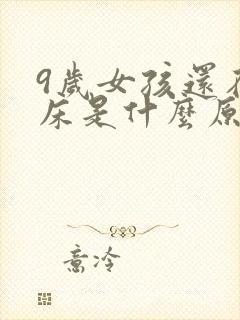 9歲女孩還
床是什麼原
意冷